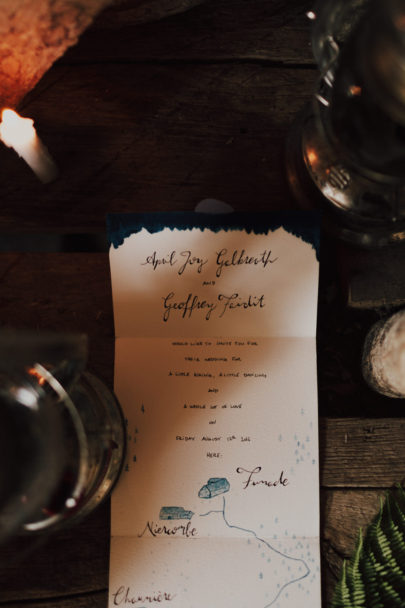 April Joy Galbreath
AND
Geoffrey Faidit
WOULD LIKE TO INVITE YOU FOR
THEIR WEDDING FOR
A LITTLE DINING, A LITTLE DANCING
AND
A WHOLE LOT OF LOVE
ON
FRIDAY AUGUST 12TH 2016
HERE:
Fumade
Niercombe
Chaumière